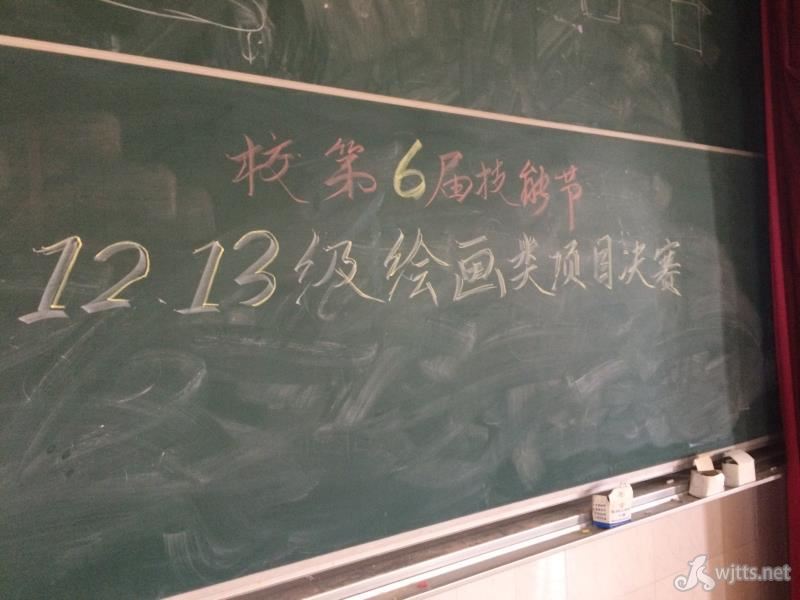 校第6届技能节
12.13级绘画类项目决赛
wjtts.net